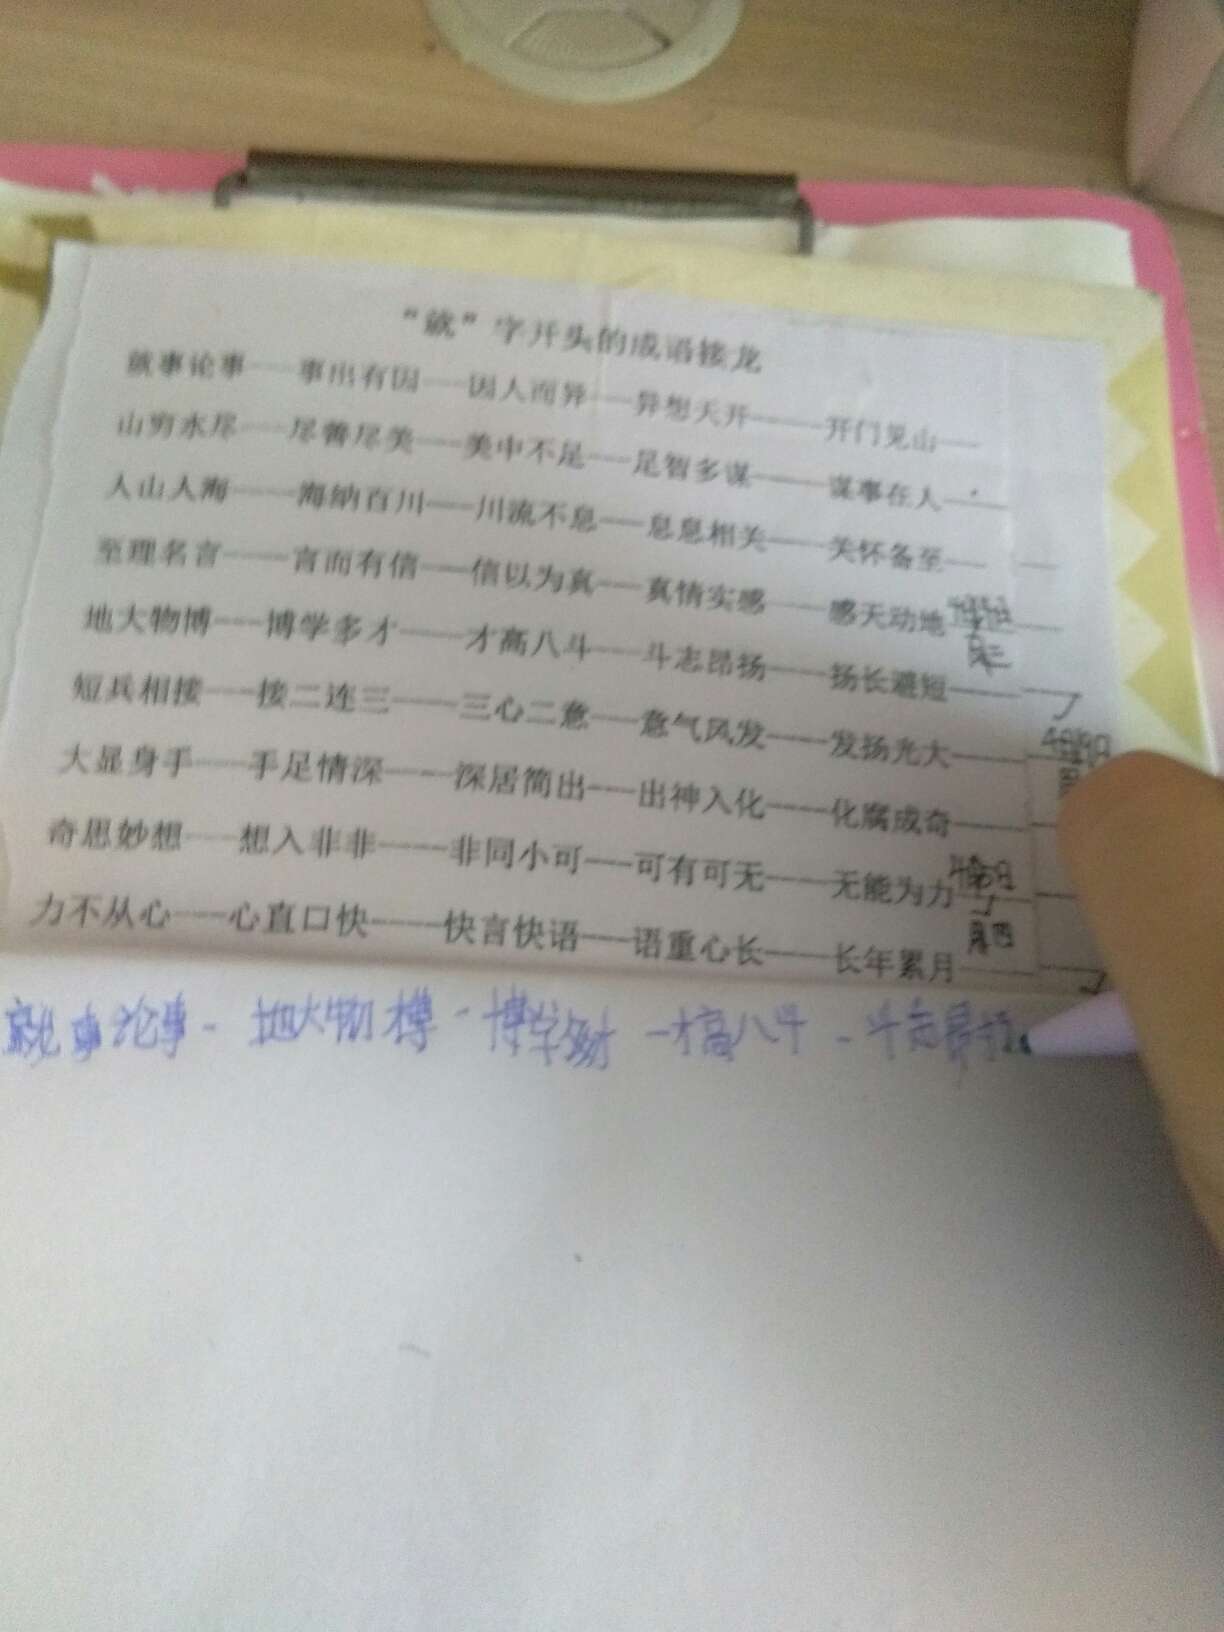 “就”字开头的成语接龙
就事论事——事出有因——因人而异——异想天开——开门见山——
山穷水尽——尽善尽美——美中不足——足智多谋——谋事在人——
人山人海——海纳百川——川流不息——息息相关——关怀备至——
至理名言——言而有信——信以为真——真情实感——感天动地
地大物博——博学多才——才高八斗——斗志昂扬——扬长避短——
短兵相接——接二连三——三心二意——意气风发——发扬光大——
大显身手——手足情深——深居简出——出神入化——化腐成奇——
奇思妙想——想入非非——非同小可——可有可无——无能为力
力不从心——心直口快——快言快语——语重心长——长年累月——
就事论事- 地大物博-博学多才-才高八斗-斗志昂扬